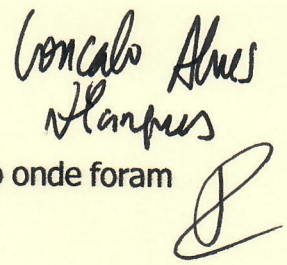 Goncalo Alves
Marques
o onde foram